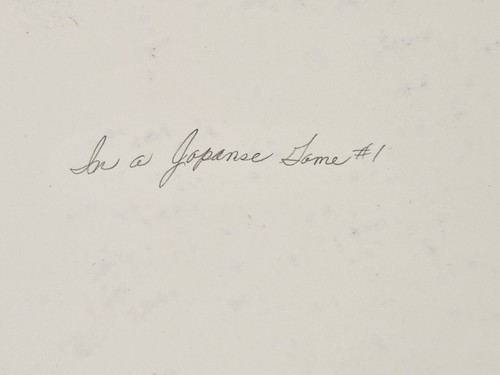 In a Japanse Tome #1